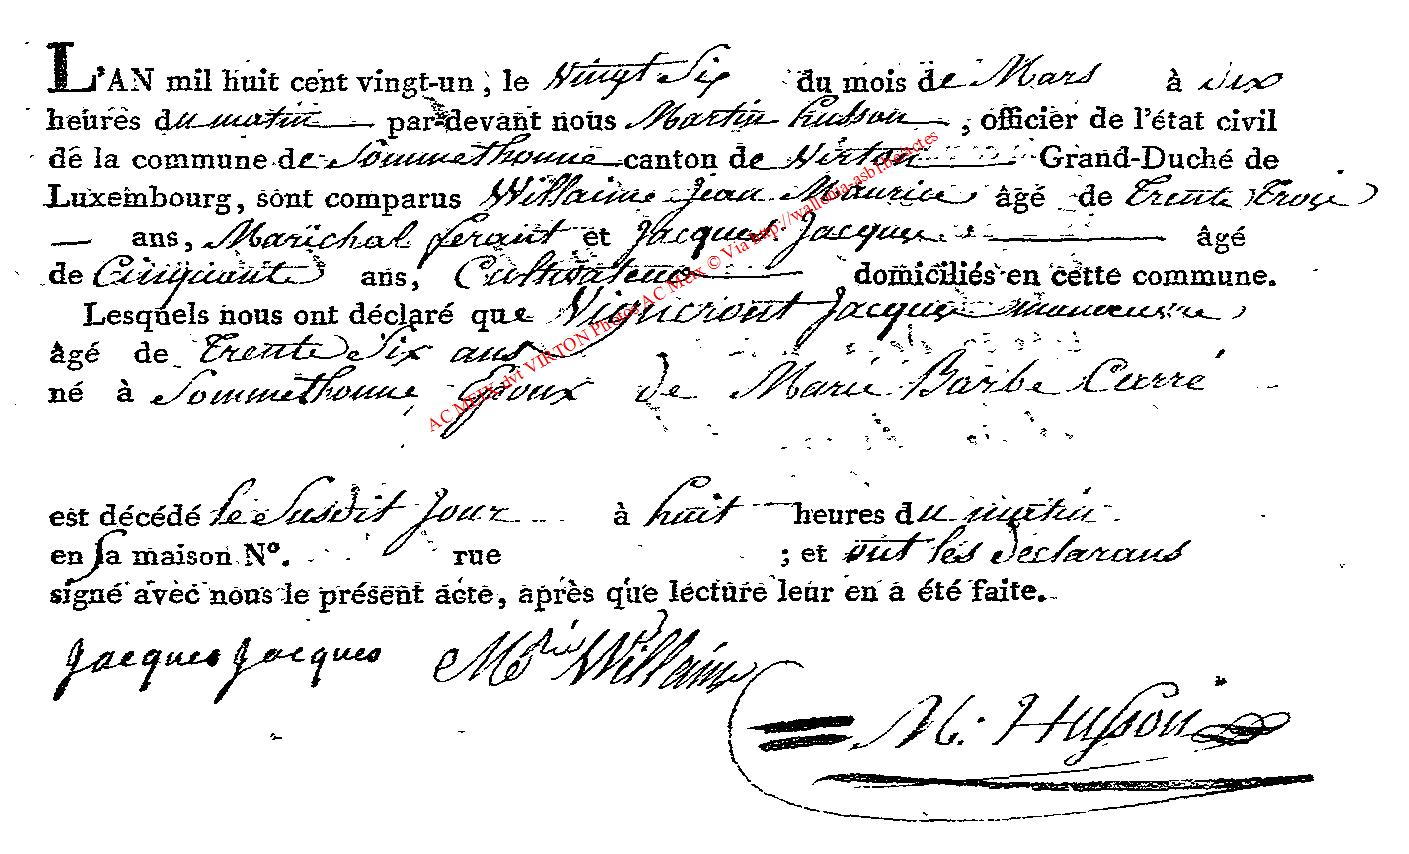 L'AN mil huit cent vingt-un, le Vingt Six du mois de Mars à dix
heures du matin par-devant nous Martin husson, officier de l'état civil
de la commune de Sommethonne canton de Virton Grand-Duché de
Luxembourg, sont comparus Willaime Jean Maurice âgé de trente trois
ans, Marichal ferant et Jacques Jacques âgé
de Cinquant ans, Cultivateur domiciliés en cette commune.
Lesquels nous ont déclaré que Vigneront Jacques manoeuvre
âgé de trente Six ans
né à Sommethonne Epoux de Marie Barbe Carré
est décédé le Susdit Jour à huit heures du matin
en sa maison N°. rue ; et ont les déclarans
signé avec nous le présent acte, après que lecture leur en a été faite.
Jacques Jacques Mrie Willaim
M. Husson
AC MEIX dvt VIRTON Photos AC Meix © Via http://wallonia-asbl.be/actes